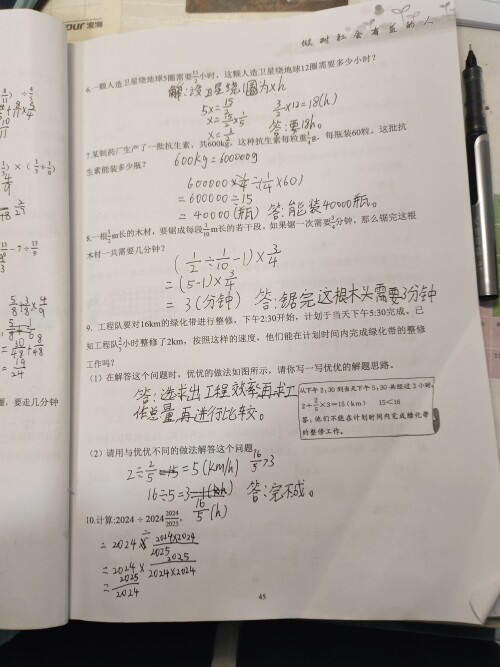 做对社会有益的人
6.一颗人造卫星绕地球5圈需要15/2小时，这颗人造卫星绕地球12圈需要多少小时？
解：设卫星绕1圈为xh
5x=15/2
x=3/2
3/2×12=18(h)
答：要18h。
7.某制药厂生产了一批抗生素，共600kg，这种抗生素每粒重1/4g，每瓶装60粒，这批抗
生素能装多少瓶？
600kg=600000g
600000÷(1/4×60)
=600000÷15
=40000(瓶) 答：能装40000瓶。
8.一根1/2m长的木材，要锯成每段1/10m长的若干段，如果锯一次需要3/4分钟，那么锯完这根
木材一共需要几分钟？
(1/2÷1/10-1)×3/4
=(5-1)×3/4
=3(分钟) 答：锯完这根木头需要3分钟
9. 工程队要对16km的绿化带进行整修，下午2:30开始，计划于当天下午5:30完成，已
知工程队2/5小时整修了2km，按照这样的速度，他们能在计划时间内完成绿化带的整修
工作吗？
（1）在解答这个问题时，优优的做法如图所示，请你写一写优优的解题思路。
答：先求出工程效率再求工
作总量再进行比较。
从下午2:30到当天下午5:30共经过3小时，
2÷2/5×3=15(km) 15<16
答：他们不能在计划时间内完成绿化带
的整修工作。
（2）请用与优优不同的做法解答这个问题
2÷2/5=5(km/h) 16/5>3
16÷5=16/5(h) 答：完不成。
10.计算:2024÷2024 2024/2025，
=2024÷2024×2024/2025
=2024×2025/2024×2024
=2025/2024
圈，要走几分钟
45